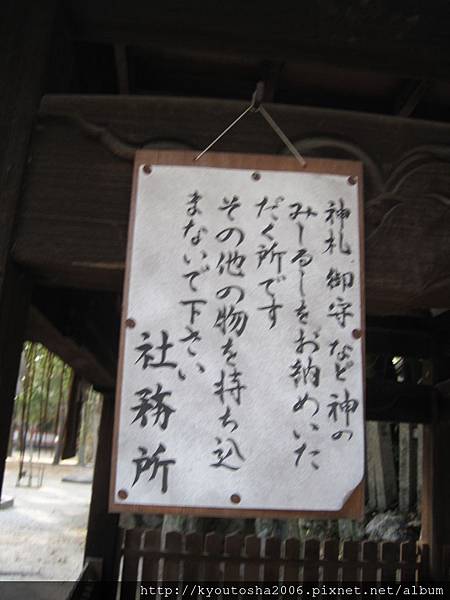 神札、御守など神の
みしるしをお納めいた
だく所です
その他の物を持ち込
まないで下さい
社務所
http://kyoutosha2006.pixnet.net/album